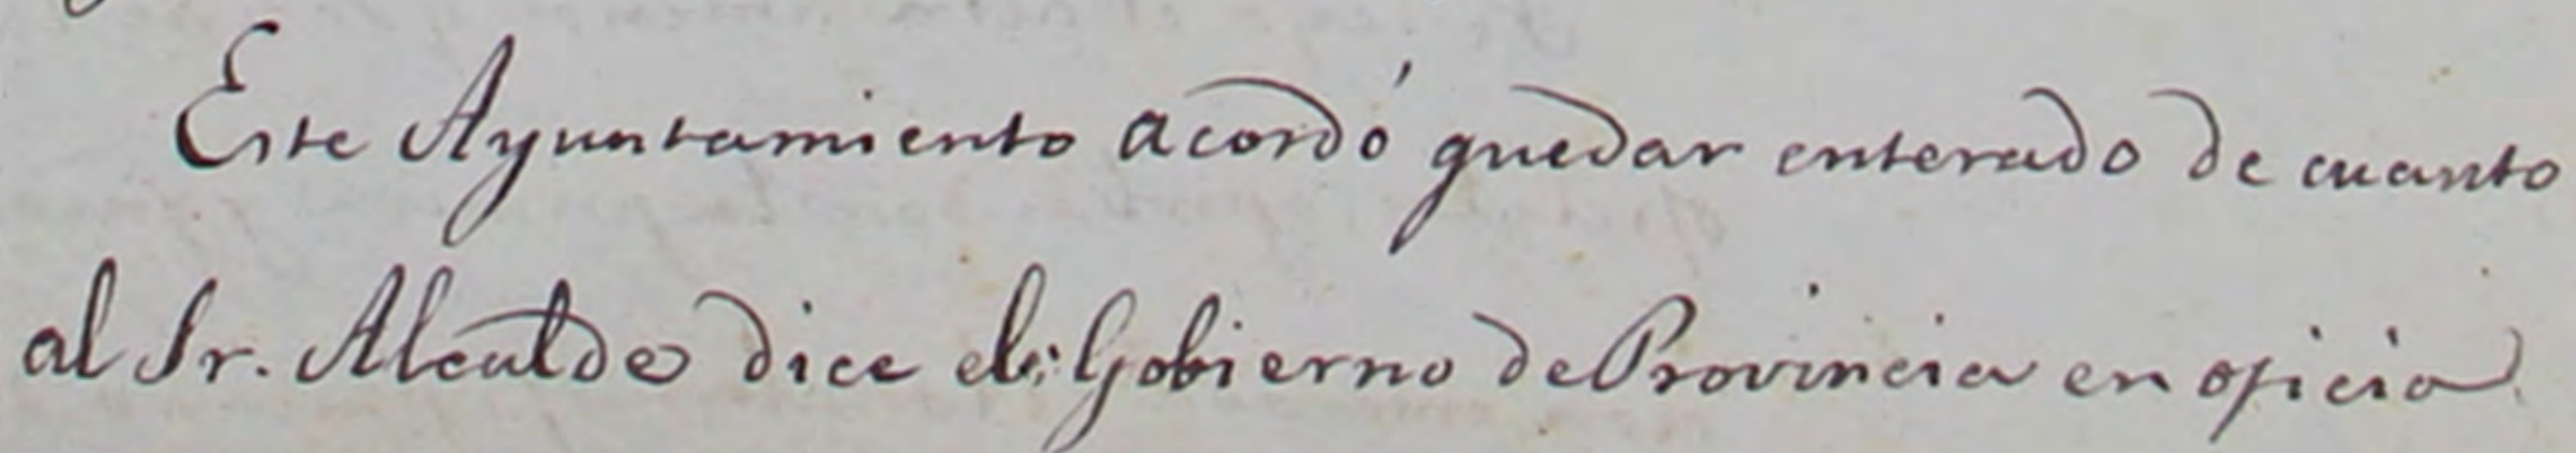 Este Ayuntamiento acordó quedar enterado de cuanto
al Sr. Alcalde dice el Gobierno de Provincia en oficio